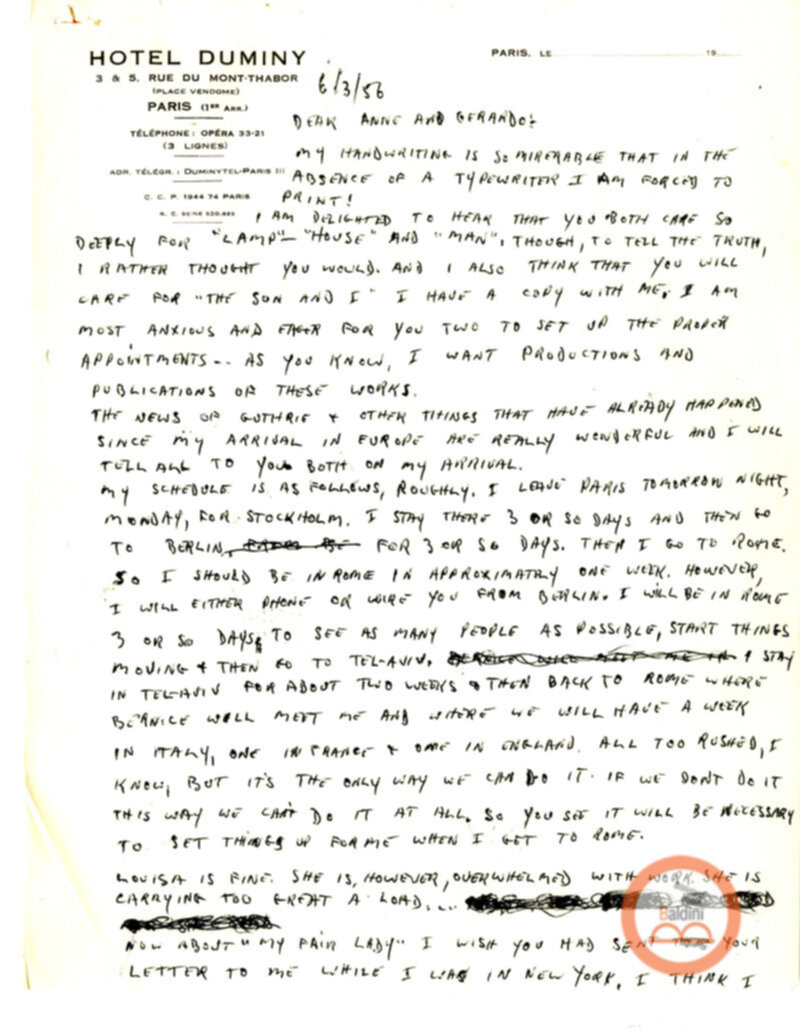 1
HOTEL DUMINY
3 & 5, RUE DU MONT-THABOR
(PLACE VENDOME)
PARIS (1ER ARR.)
TÉLÉPHONE : OPÉRA 33-21
(3 LIGNES)
ADR. TÉLÉGR. : DUMINYTEL-PARIS III
C. C. P. 1944 74 PARIS
R. C. SEINE 320.485
PARIS, LE 19
6/3/56
DEAR ANNE AND GERARDO:
MY HANDWRITING IS SO MIRERABLE THAT IN THE
ABSENCE OF A TYPEWRITER I AM FORCED TO
PRINT!
I AM DELIGHTED TO HEAR THAT YOU BOTH CARE SO
DEEPLY FOR "LAMP" - "HOUSE" AND "MAN", THOUGH, TO TELL THE TRUTH,
I RATHER THOUGHT YOU WOULD. AND I ALSO THINK THAT YOU WILL
CARE FOR "THE SON AND I" I HAVE A COPY WITH ME. I AM
MOST ANXIOUS AND EAGER FOR YOU TWO TO SET UP THE PROPER
APPOINTMENTS -- AS YOU KNOW, I WANT PRODUCTIONS AND
PUBLICATIONS OF THESE WORKS.
THE NEWS OF GUTHRIE & OTHER THINGS THAT HAVE ALREADY HAPPENED
SINCE MY ARRIVAL IN EUROPE ARE REALLY WONDERFUL AND I WILL
TELL ALL TO YOU BOTH ON MY ARRIVAL.
MY SCHEDULE IS AS FOLLOWS, ROUGHLY. I LEAVE PARIS TOMORROW NIGHT,
MONDAY, FOR STOCKHOLM. I STAY THERE 3 OR SO DAYS AND THEN GO
TO BERLIN, FOR 3 OR SO DAYS. THEN I GO TO ROME.
SO I SHOULD BE IN ROME IN APPROXIMATLY ONE WEEK. HOWEVER,
I WILL EITHER PHONE OR WIRE YOU FROM BERLIN. I WILL BE IN ROME
3 OR SO DAYS, TO SEE AS MANY PEOPLE AS POSSIBLE, START THINGS
MOVING & THEN GO TO TEL-AVIV. I STAY
IN TEL-AVIV FOR ABOUT TWO WEEKS & THEN BACK TO ROME WHERE
BERNICE WILL MEET ME AND WHERE WE WILL HAVE A WEEK
IN ITALY, ONE IN FRANCE & ONE IN ENGLAND. ALL TOO RUSHED, I
KNOW, BUT IT'S THE ONLY WAY WE CAN DO IT. IF WE DON'T DO IT
THIS WAY WE CAN'T DO IT AT ALL. SO YOU SEE IT WILL BE NECESSARY
TO SET THINGS UP FOR ME WHEN I GET TO ROME.
LOUISA IS FINE. SHE IS, HOWEVER, OVERWHELMED WITH WORK. SHE IS
CARRYING TOO GREAT A LOAD...
NOW ABOUT "MY FAIR LADY" I WISH YOU HAD SENT YOUR
LETTER TO ME WHILE I WAS IN NEW YORK. I THINK I
Baldini